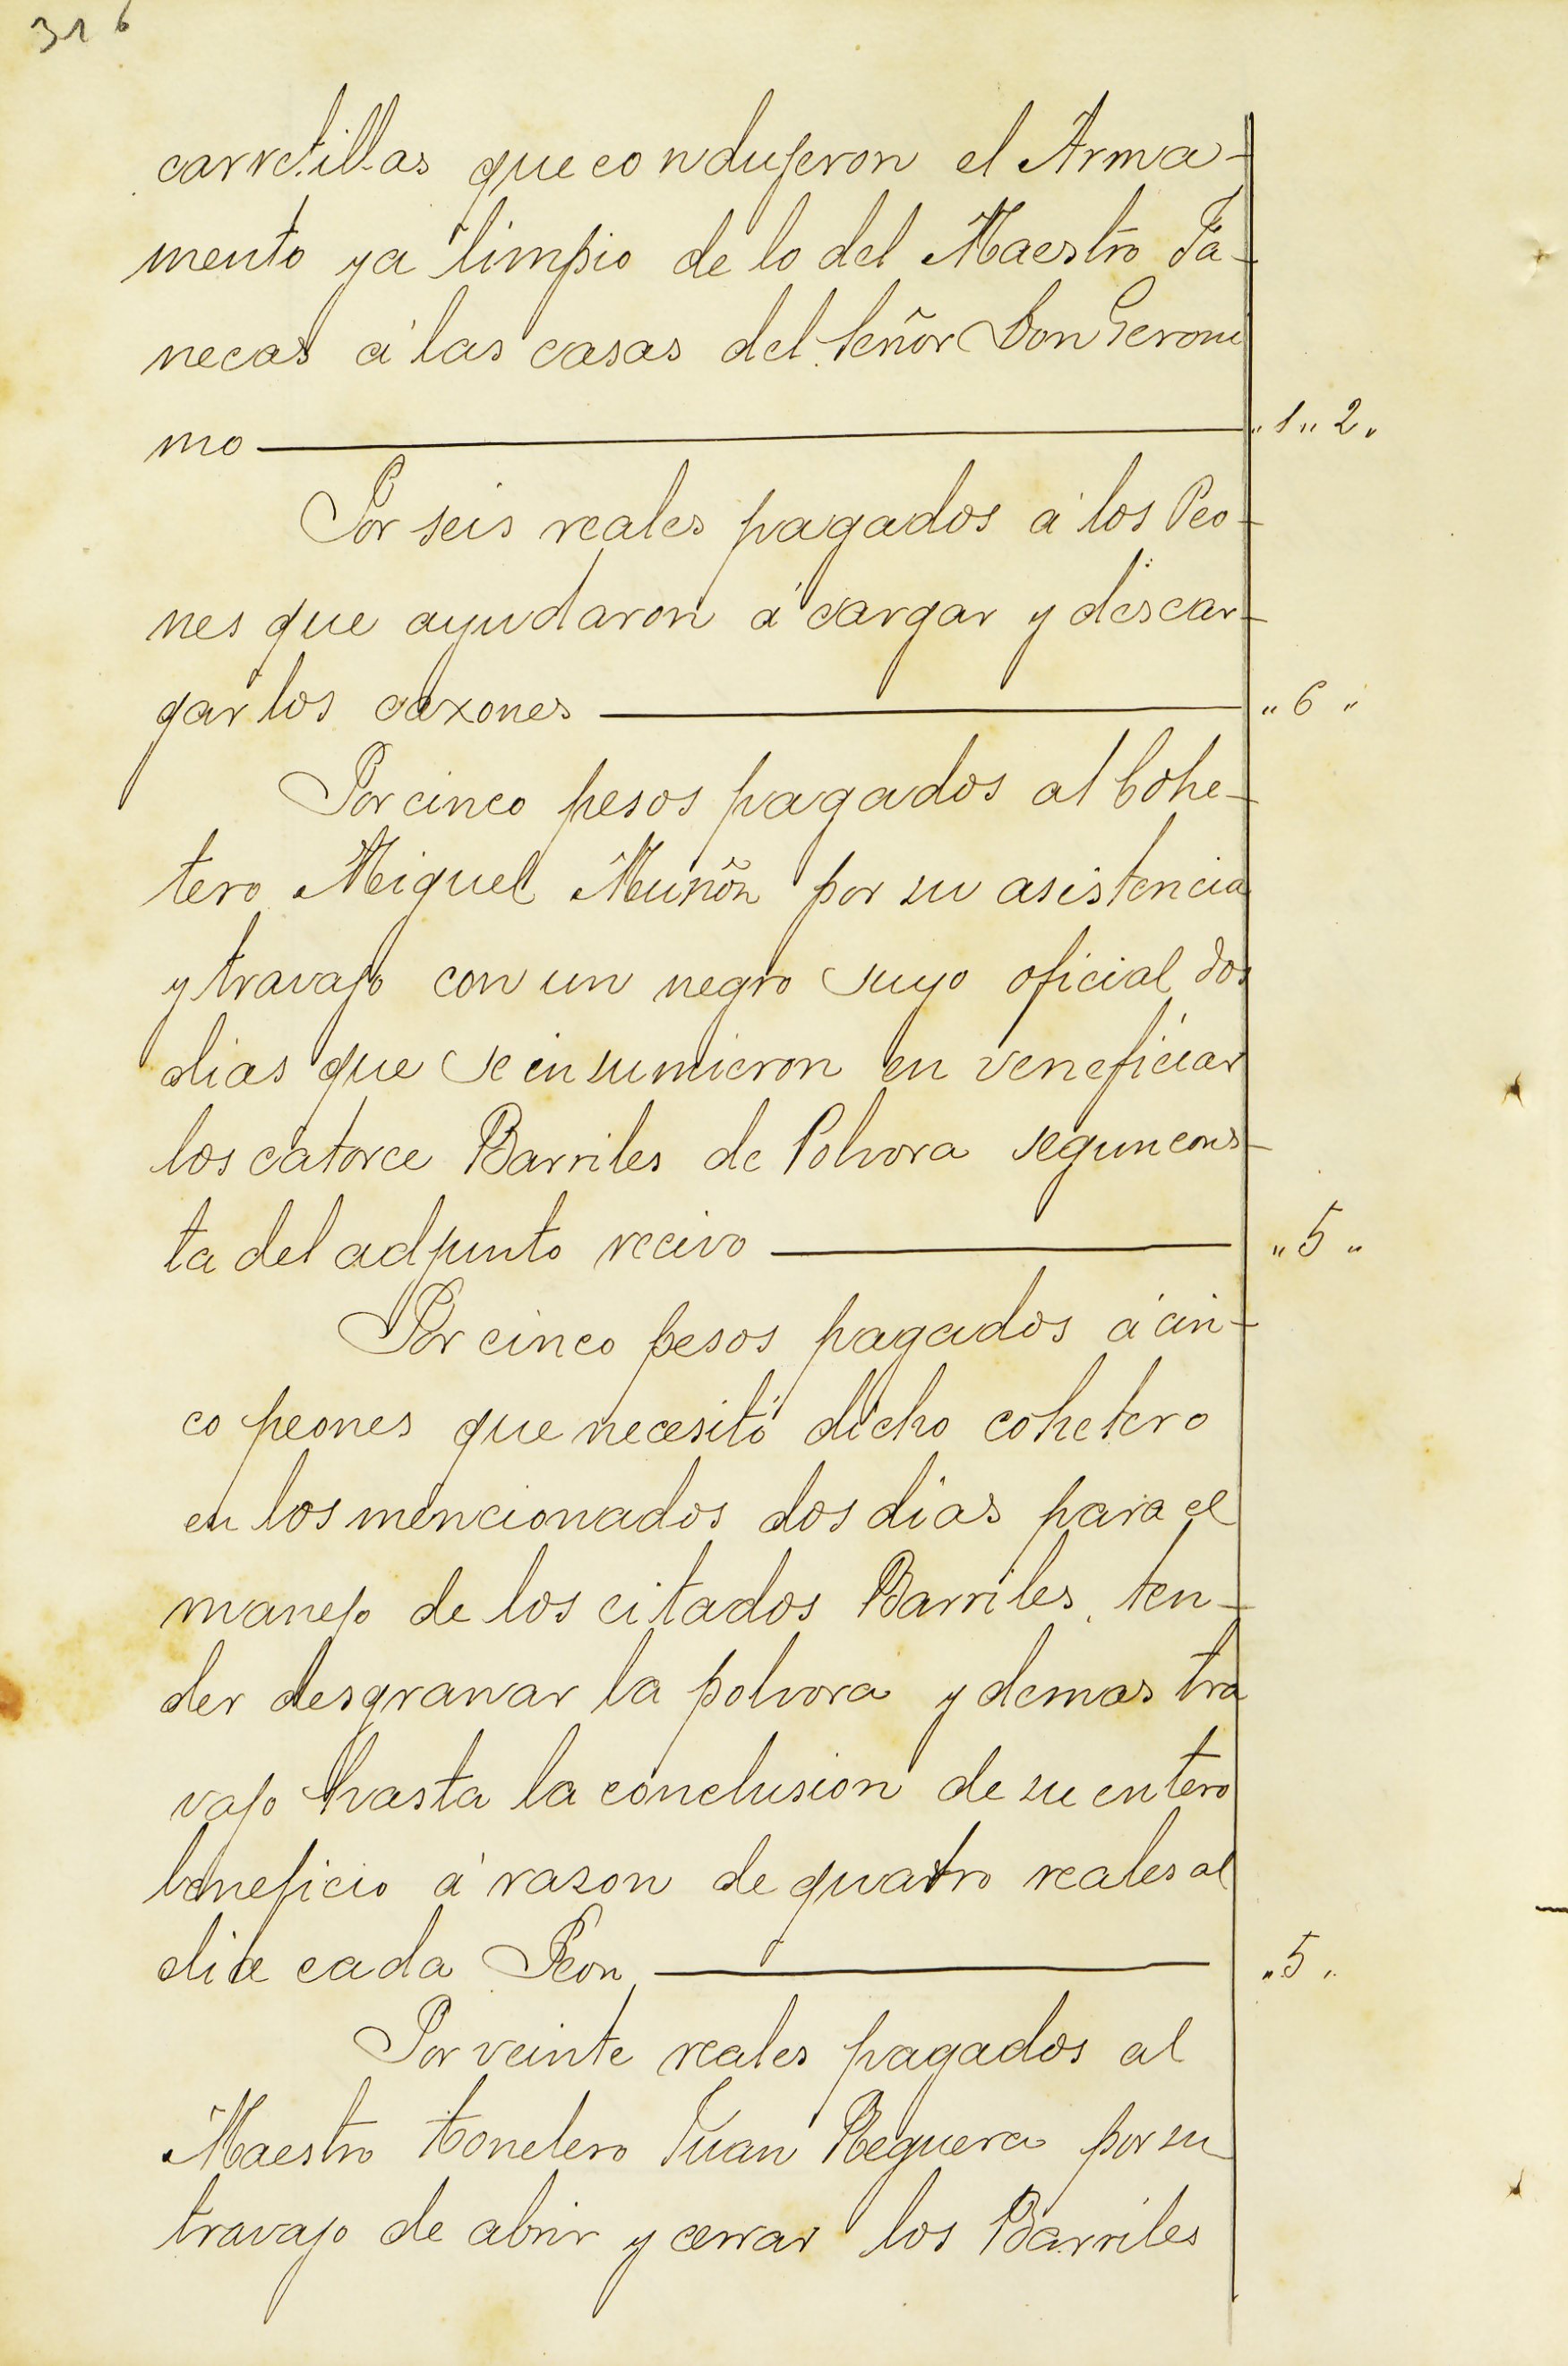 316
carretillas que condujeron el Arma-
mento ya limpio de lo del Maestro Fa-
necas á las casas del Señor Don Geroni
mo ,, 1 ,, 2 ,,
Por seis reales pagados á los Peo-
nes que ayudaron á cargar y descar-
gar los caxones ,, 6 ,,
Por cinco pesos pagados al Cohe-
tero Miguel Muñóz por su asistencia
y travajo con un negro suyo oficial dos
dias que se insumieron en veneficiar
los catorce Barriles de Polvora segun cons-
ta del adjunto recivo ,, 5 ,,
Por cinco pesos pagados á cin-
co peones que necesitó dicho cohetero
en los mencionados dos dias para el
manejo de los citados Barriles, ten-
der desgranar la polvora y demas tra
vajo hasta la conclusion de su entero
beneficio á razon de quatro reales al
dia cada Peon ,, 5 ,,
Por veinte reales pagados al
Maestro tonelero Juan Reguera por su
travajo de abrir y cerrar los Barriles